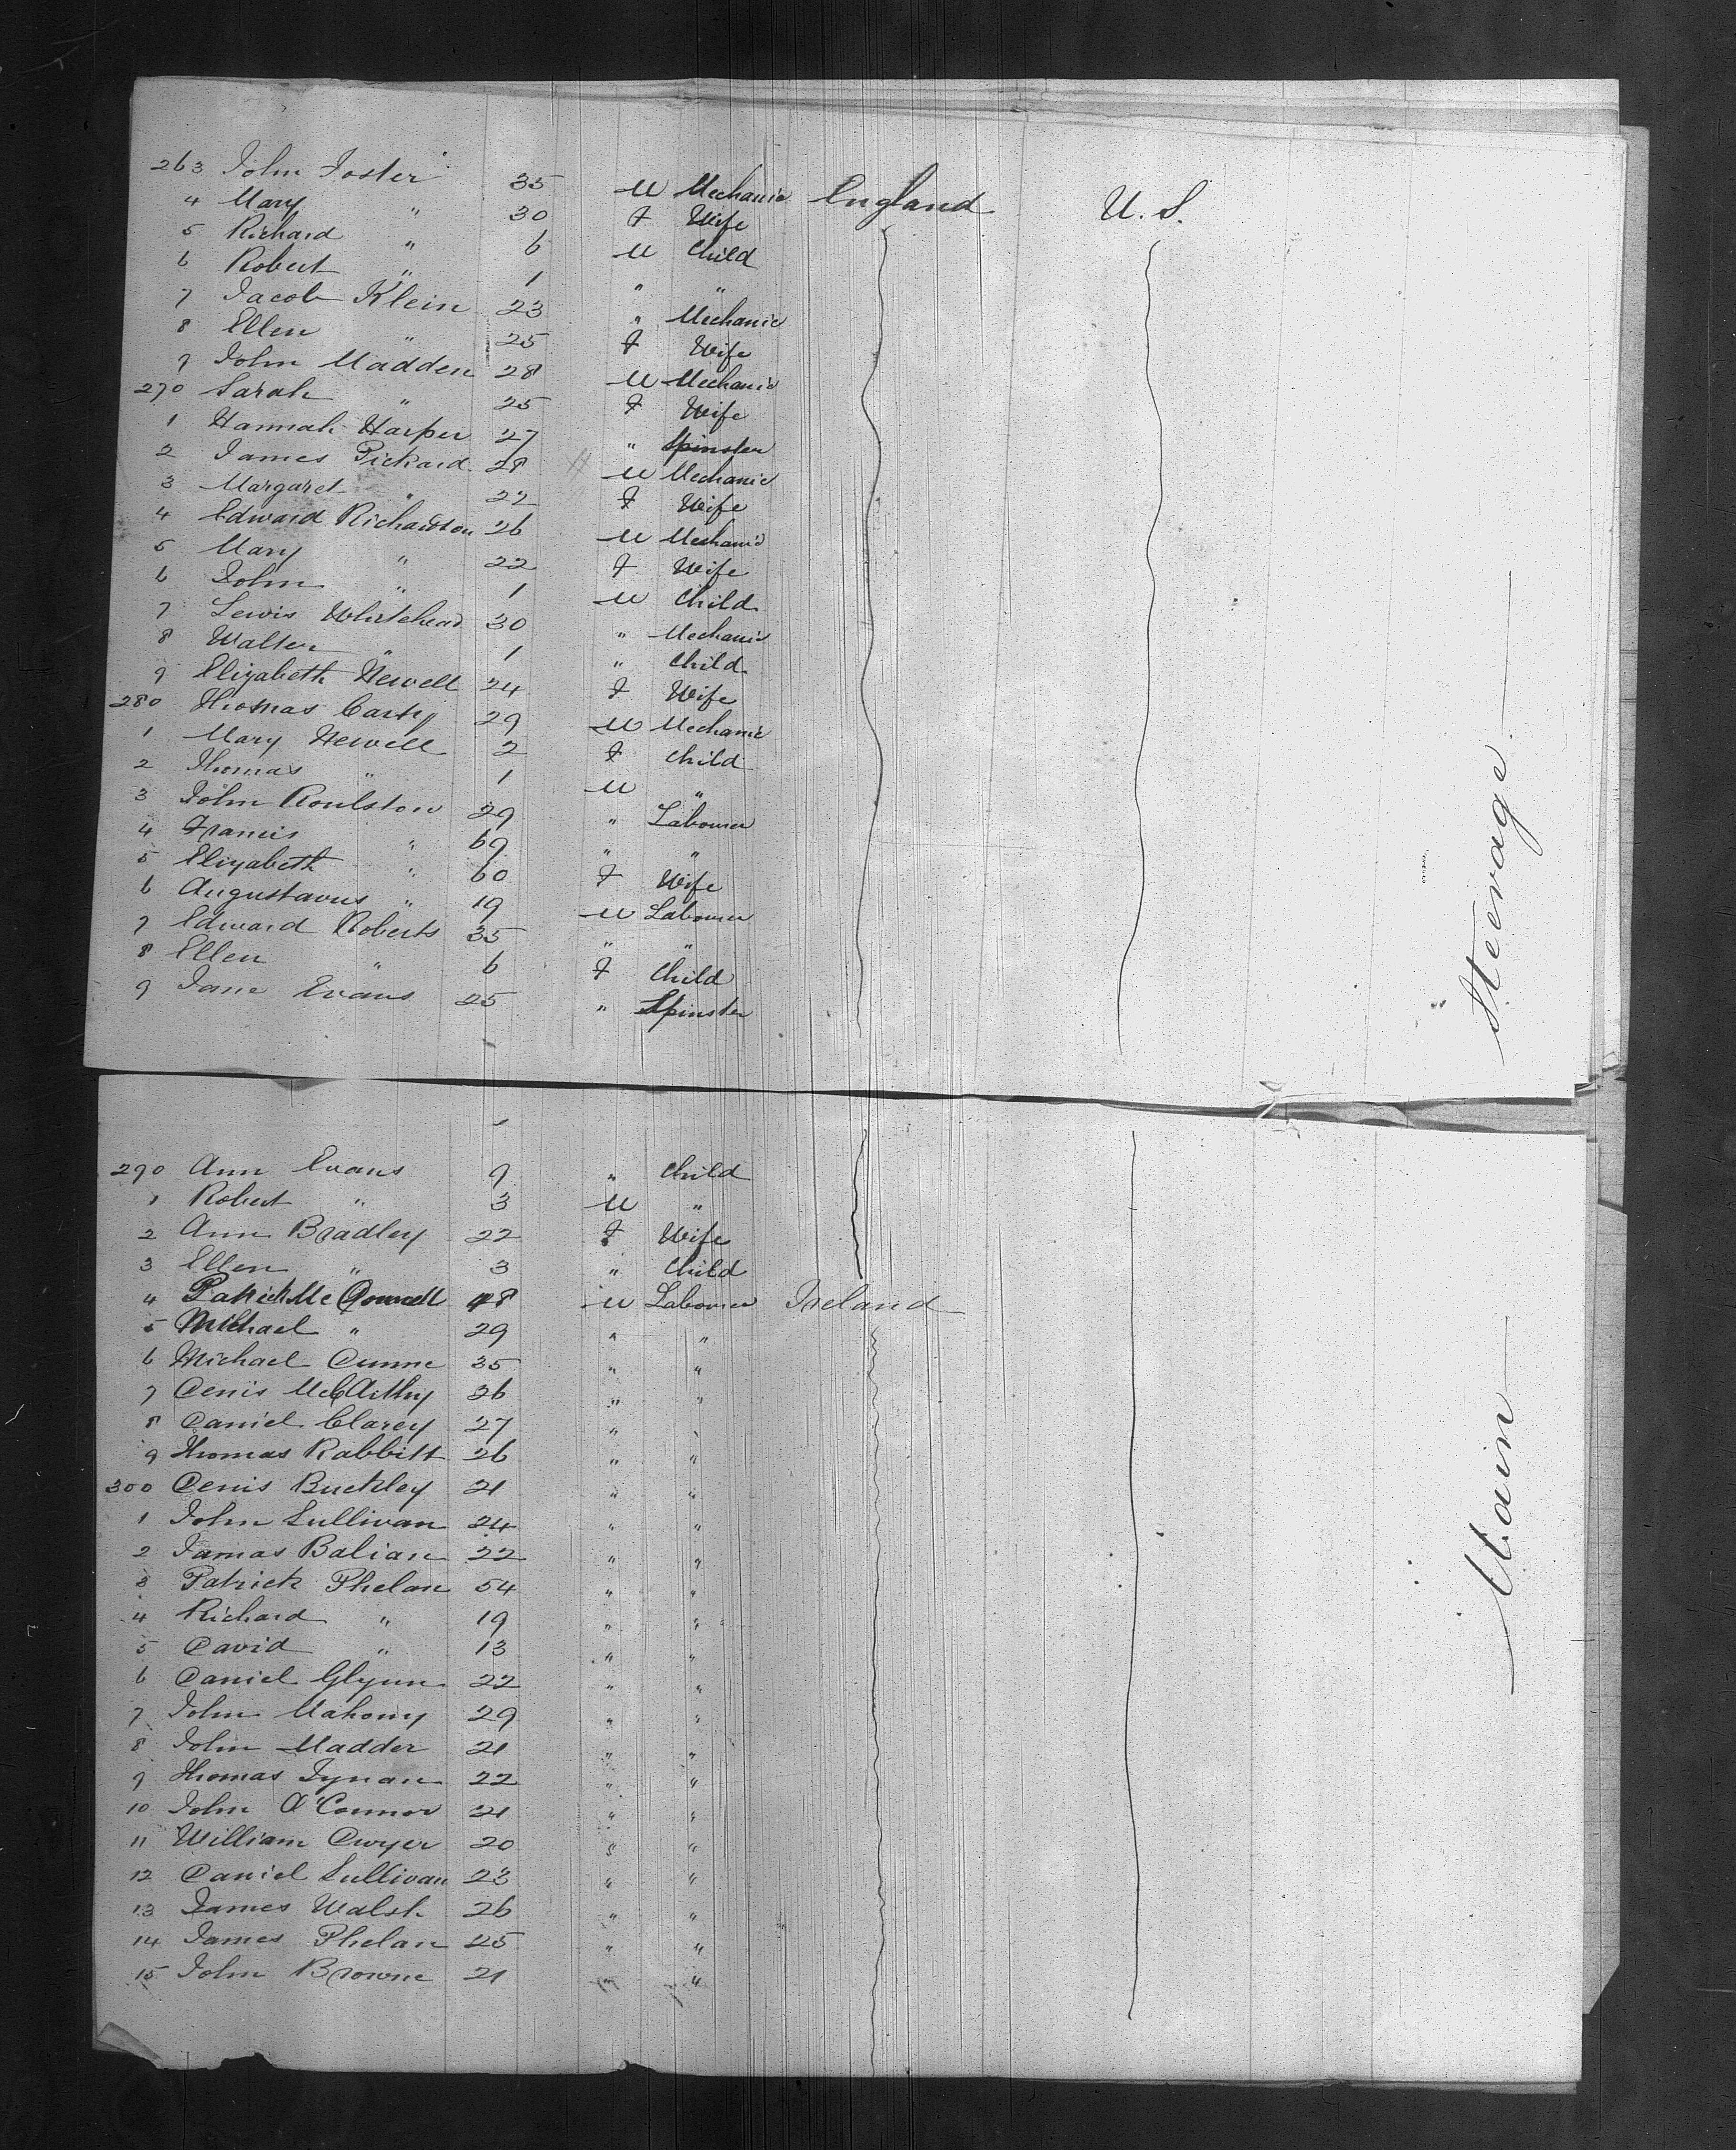 263 John Foster 35 M Mechanic England U. S.
4 Mary " 30 F Wife
5 Richard " 6 M Child
6 Robert " 1 " "
7 Jacob Klein 23 " Mechanic
8 Ellen " 25 F Wife
9 John Madden 28 M Mechanic
270 Sarah " 25 F Wife
1 Hannah Harper 27 " Spinster
2 James Pickard 28 M Mechanic
3 Margaret " 22 F Wife
4 Edward Richardson 26 M Mechanic
5 Mary " 22 F Wife
6 John " 1 M Child
7 Lewis Whitehead 30 " Mechanic
8 Walter " 1 " Child
9 Elizabeth Newell 24 F Wife
280 Thomas Carty 29 M Mechanic
1 Mary Newell 2 F Child
2 Thomas " 1 M "
3 John Roulston 29 " Labourer
4 Francis " 69 " "
5 Elizabeth " 60 F Wife
6 Augustavus " 19 M Labourer
7 Edward Roberts 35 " "
8 Ellen " 6 F Child
9 Jane Evans 25 " Spinster
Steerage
290 Ann Evans 9 " Child
1 Robert " 3 M "
2 Ann Bradley 22 F Wife
3 Ellen " 3 " Child
4 Patrick Mc 48 M Labourer Ireland
5 Michael " 29 " "
6 Michael Dunne 35 " "
7 Denis McCarthy 26 " "
8 Daniel Clarey 27 " "
9 Thomas Rabbitt 26 " "
300 Denis Buckley 21 " "
1 John Sullivan 24 " "
2 Jamas Balian 22 " "
3 Patrick Phelan 54 " "
4 Richard " 19 " "
5 David " 13 " "
6 Daniel Glynn 22 " "
7 John Mahony 29 " "
8 John Madder 21 " "
9 Thomas Tynan 22 " "
10 John O'Connor 21 " "
11 William Dwyer 20 " "
12 Daniel Sullivan 23 " "
13 James Walsh 26 " "
14 James Phelan 25 " "
15 John Browne 21 " "
Main